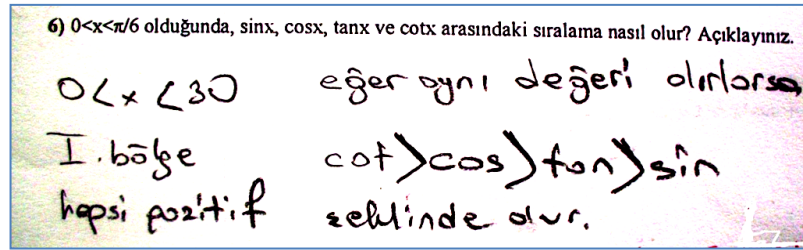 6) 0<x<π/6 olduğunda, sinx, cosx, tanx ve cotx arasındaki sıralama nasıl olur? Açıklayınız.
0<x<30 eğer aynı değeri alırlarsa,
I.bölge cot>cos>tan>sin
hepsi pozitif şeklinde olur.